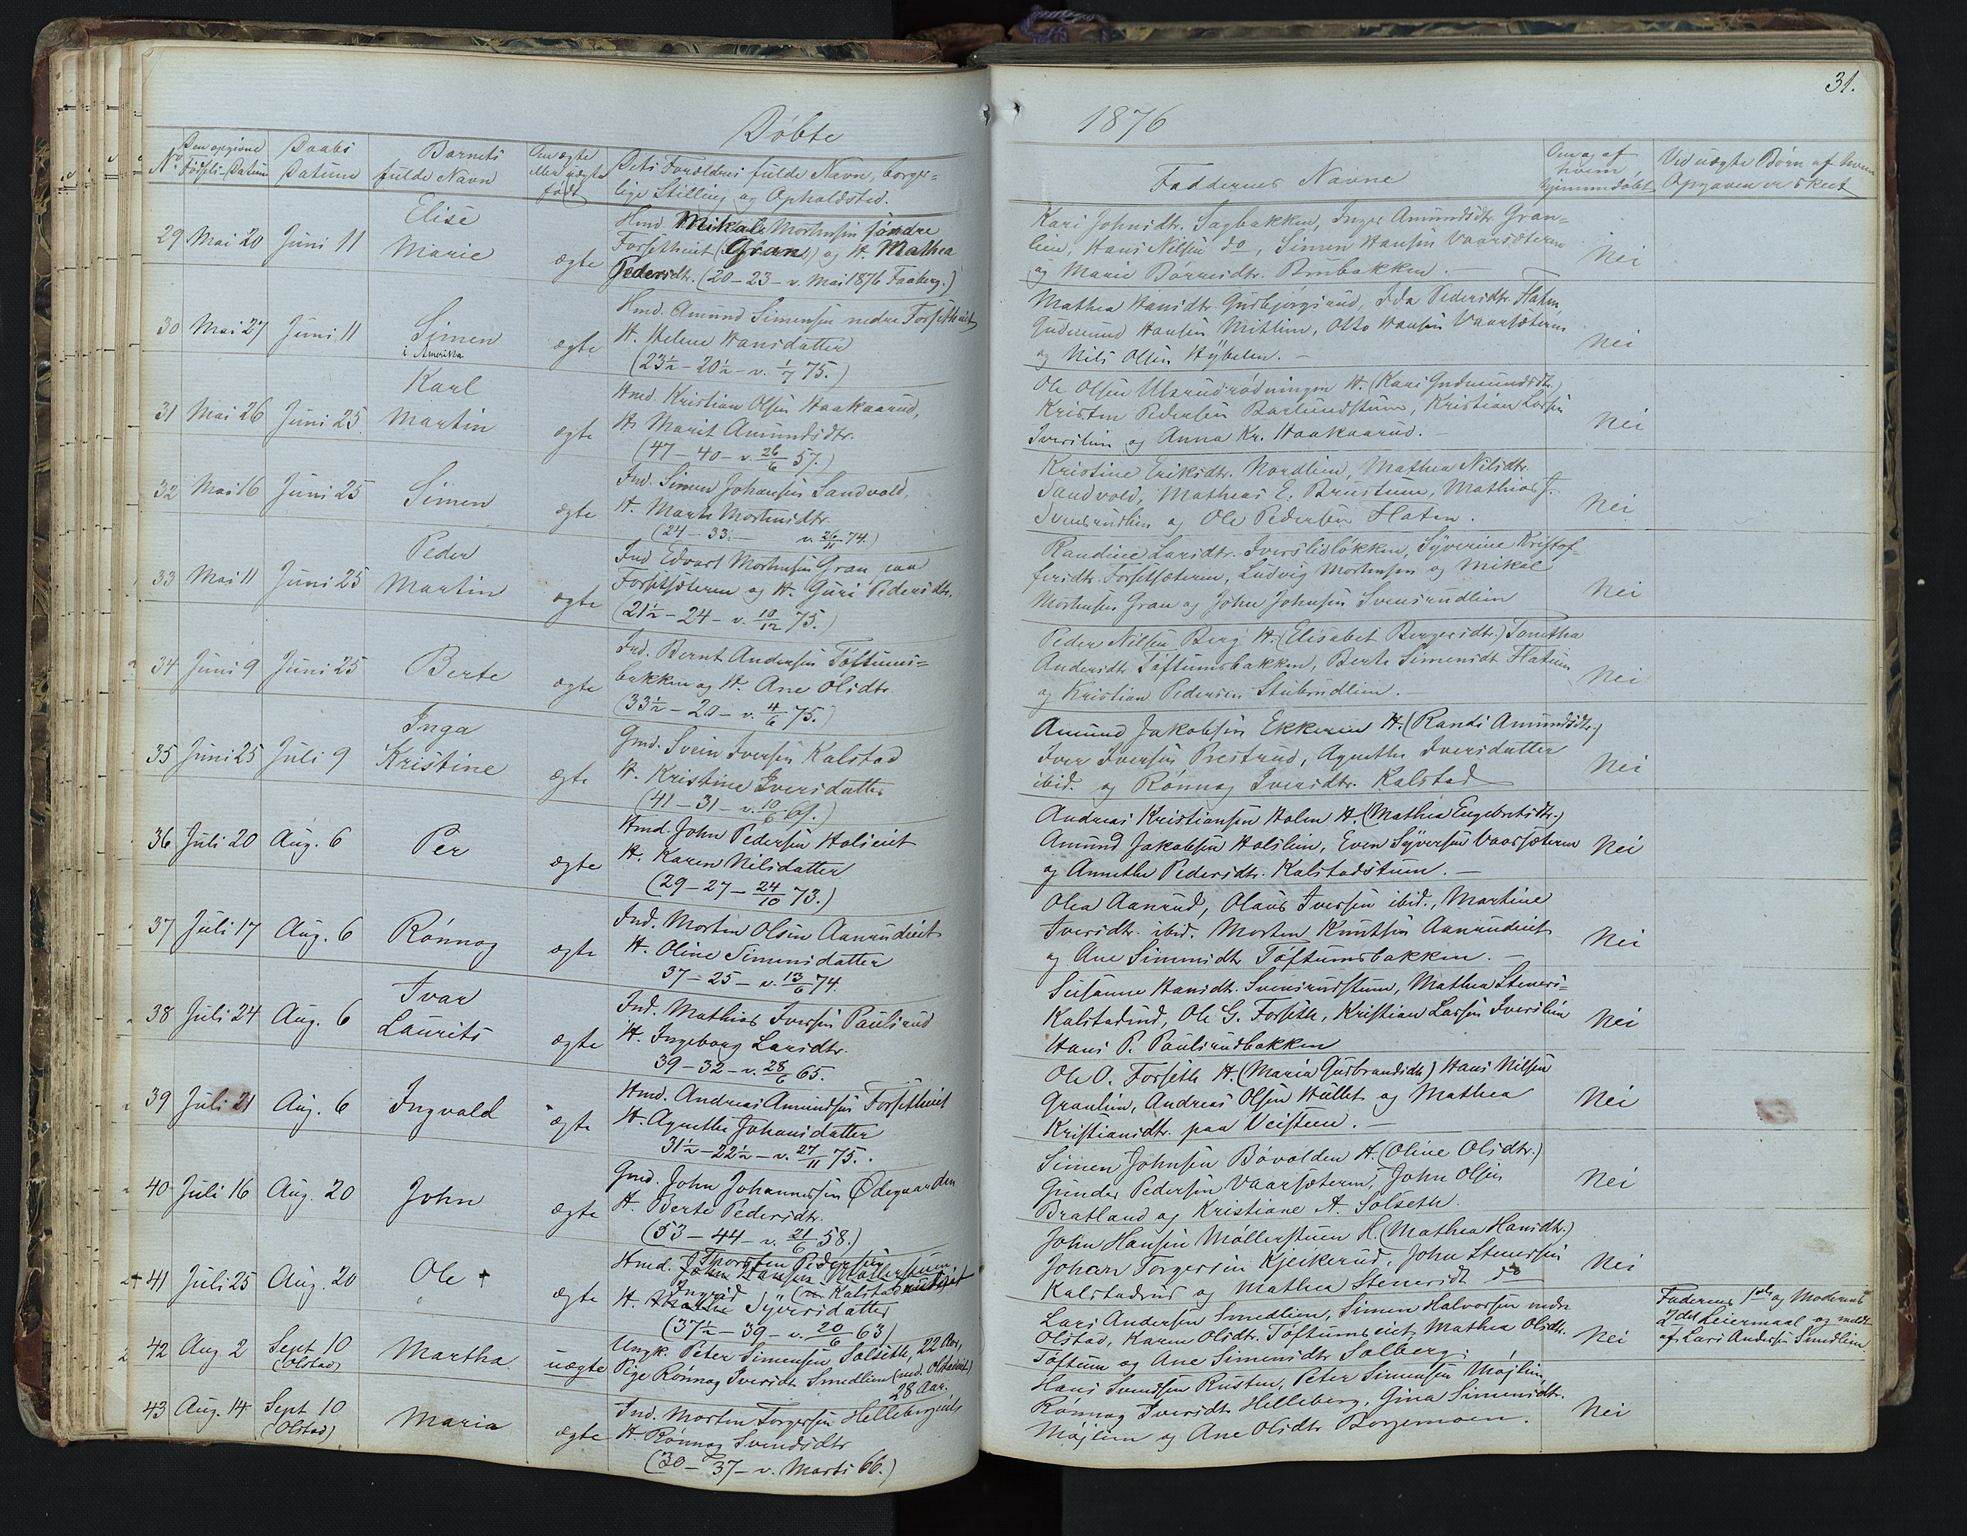 31.
Døbte
1876
No.
Den opgivne Fødsels-Datum
Daabs Datum
Barnets fulde Navn
Om ægte eller uægte født
Dets Forældres fulde Navn, borgerlige Stilling og Opholdsted.
Faddernes Navne
Om og af hvem hjemmedøbt
Ved uægte Børn af hvem Opgaven er skeet
29 Mai 20 Juni 11 Elise Marie ægte
Hmd Mikal Mortensen søndre
Forsetheiet (Gran) og H. Mathea
Pedersdtr. (20 – 23 – v. Mai 1876 Faaberg.)
Kari Johnsdtr. Sagbakken, Inger Amundsdtr. Gran-
lien, Hans Nilsen do, Simen Hansen Vaarsæteren
og Marie Baardsdtr. Brubakken. –
Nei
30 Mai 27 Juni 11 Simen
i Amerika
ægte
Hmd. Amund Simensen nedre Forsetheiet
H. Helene Hansdatter
(23½ – 20½ – v. 1/7 75.)
Mathea Hansdtr. Gudbjørgsrud, Ida Pedersdtr. Flaten
Gudmund Hansen Mitlien, Otto Hansen Vaarsæteren
og Nils Olsen Hybelen. –
Nei
31 Mai 26 Juni 25 Karl Martin ægte
Hmd. Kristian Olsen Haakaarud,
H. Marit Amundsdtr.
(47 – 40 – v. 26/6 57.)
Ole Olsen Ulsrudrødningen H. (Kari Gudmundsdtr.)
Kristen Pedersen Barlundstuen, Kristian Larsen
Iverslien og Anna Kr. Haakaarud. –
Nei
32 Mai 16 Juni 25 Simen ægte
Ind. Simen Johansen Sandvold,
H. Marte Mortensdtr.
(24 – 33. – v. 26/11 74.)
Kristine Eriksdtr. Nordlien, Mathea Nilsdtr.
Sandvold, Mathias E. Brustuen, Mathias J.
Svensrudlien og Ole Pedersen Flaten.
Nei
33 Mai 11 Juni 25 Peder Martin ægte
Ind Edvart Mortensen Gran paa
Forsetsæteren og H. Guri Pedersdtr.
(21½ – 24 – v. 10/12 75.)
Randine Larsdtr. Iversliløkken, Syverine Kristof-
fersdtr. Forsetsæteren, Ludvig Mortensen og Mikal
Mortensen Gran og John Johnsen Svensrudlien
Nei
34 Juni 9 Juni 25 Berte ægte
Ind. Bernt Andersen Tøftums-
bakken og H. Ane Olsdtr.
(33½ – 20 – v. 4/6 75.)
Peder Nilsen Berg H. (Elisabet Bergersdtr.)
Andersdtr. Tøftumsbakken, Berte Simensdt. Flatum
og Kristian Pedersen Stubrudlien. –
Nei
35 Juni 25 Juli 9 Inga Kristine ægte
Gmd. Svein Iversen Kalstad
H. Kristine Iversdatter
(41 – 31 – v. 10/6 69.)
Amund Jakobsen Ekkeren H. (Randi Amundsdtr.)
Iver Iversen Prestrud, Agnethe Iversdatter
ibid. og Rønnog Iversdtr. Kalstad
Nei
36 Juli 20 Aug. 6 Per ægte
Hmd. John Pedersen Holseiet
H. Karen Nilsdatter
(29 – 27 – 24/10 73.)
Andreas Kristiansen Holen H. (Mathea Engebretsdtr.)
Amund Jakobsen Holslien, Even Syversen Vaarsæteren
og Annethe Pedersdtr. Kalstadstuen. –
Nei
37 Juli 17 Aug. 6 Rønnog ægte
Ind. Morten Olsen Aanrudeiet
H. Oline Simensdatter
37 – 25 – v. 13/6 74.
Olea Aanrud, Olaus Iversen ibid., Martine
Iversdtr. ibid. Morten Knutsen Aanrudeiet
og Ane Simensdtr. Tøftumsbakken. –
Nei
38 Juli 24 Aug. 6 Ivar Laurits ægte
Ind. Mathias Iversen Paulsrud
H. Ingeborg Larsdtr.
39 – 32 – v. 28/6 65.
Susanne Hansdtr. Svensrudstuen, Mathea Steners-
Kalstadrud, Ole G. Forseth, Kristian Larsen Iverslien
Hans P. Paulsrudbakken
Nei
39 Juli 21 Aug. 6 Ingvald ægte
Hmd. Andreas Amundsen Forsetheiet
H. Agnethe Johansdatter
31½ – 22½ – v. 27/11 75.
Ole O. Forseth H. (Maria Gudbrandsdtr) Hans Nilsen
Granlien, Andreas Olsen Hullet og Mathea
Kristiansdtr. paa Veisteen. –
Nei
40 Juli 16 Aug. 20 John ægte
Gmd. John Johannessen Ødegaarden
H. Berte Pedersdtr.
(53 – 44 – v. 21/6 58.)
Simen Johnsen Bøvolden H. (Oline Olsdtr.)
Gunder Pedersen Vaarsæteren, John Olsen
Bratland og Kristiane A. Solseth.
Nei
41 Juli 25 Aug. 20 Ole + ægte
Hmd. Thorsten Pedersen
Kalstadrudeiet
H. Ingrid Syversdatter
(37½ – 39 – v. 20/6 63)
John Hansen Møllerstuen H. (Mathea Hansdtr.)
Johan Torgersen Kjeikerud, John Stenersen
Kalstadrud og Mathea Stenersdt. do
Nei
42 Aug 2 Sept 10 (Olstad) Martha uægte
Ungk. Peter Simensen Solseth, 22 Aar,
Pige Rønnog Iversdtr. Smedlien (ned. Olstadeiet)
28 Aar.
Lars Andersen Smedlien, Simen Halvorsen nedre
Olstad, Karen Olsdtr. Tøftumseiet, Mathea Olsdtr.
Tøftum og Ane Simensdtr. Solberg.
Nei
Faderens 1ste og Moderens
2det Leiermaal og meldt
af Lars Andersen Smedlien
43 Aug. 14 Sept 10 (Olstad) Maria ægte
Ind. Morten Torgersen Hellebergeiet
H. Rønnog Svendsdtr
(30 – 37 – v. Marts 66.)
Hans Svendsen Rusten, Peter Simensen Møjlien,
Rønnog Iversdtr. Helleberg, Gina Simensdtr.
Møjlien og Ane Olsdtr Borgemoen.
Nei